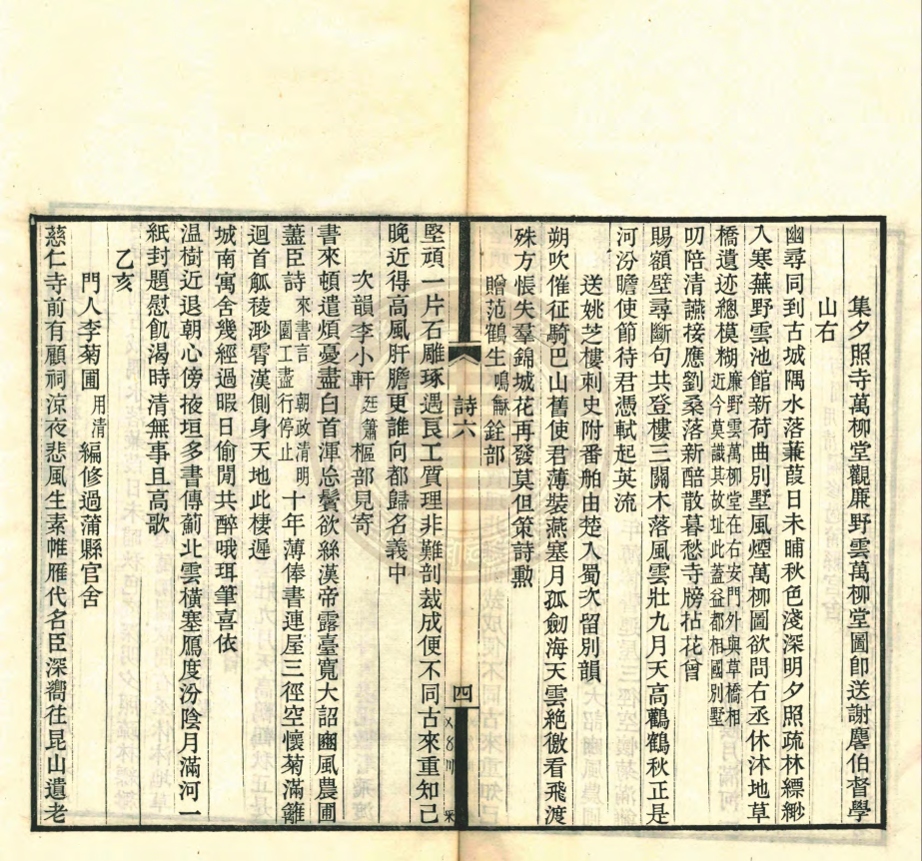 集夕照寺萬柳堂觀廉野雲萬柳堂圖卽送謝麐伯督學
山右
幽尋同到古城隅水落蒹葭日未晡秋色淺深明夕照疏林縹緲
入寒蕪野雲池館新荷曲別墅風煙萬柳圖欲問右丞休沐地草
橋遺迹總模糊廉野雲萬柳堂在右安門外與草橋相
近今莫識其故址此蓋益都相國別墅
叨陪清讌接應劉桑落新醅散暮愁寺牓拈花曾
賜額壁尋斷句共登樓三關木落風雲壯九月天高鸛鶴秋正是
河汾瞻使節待君憑軾起英流
送姚芝樓刺史附番舶由楚入蜀次留別韻
朔吹催征騎巴山舊使君薄裝燕塞月孤劒海天雲絶徼看飛渡
殊方悵失羣錦城花再發莫但策詩勳
贈范鶴生鳴龢銓部
堅頑一片石雕琢遇良工質理非難剖裁成便不同古來重知己
晚近得高風肝膽更誰向都歸名義中
次韻李小軒廷簫樞部見寄
書來頓遣煩憂盡白首渾忘鬢欲絲漢帝露臺寬大詔豳風農圃
藎臣詩來書言朝政清明
園工盡行停止十年薄俸書連屋三徑空懷菊滿籬
迴首觚稜渺霄漢側身天地此棲遲
城南寓舍幾經過暇日偷閒共醉哦珥筆喜依
温樹近退朝心傍掖垣多書傳薊北雲橫塞鴈度汾陰月滿河一
紙封題慰飢渴時清無事且高歌
乙亥
門人李菊圃用清編修過蒲縣官舍
慈仁寺前有顧祠涼夜悲風生素帷雁代名臣深嚮往昆山遺老
詩六
四